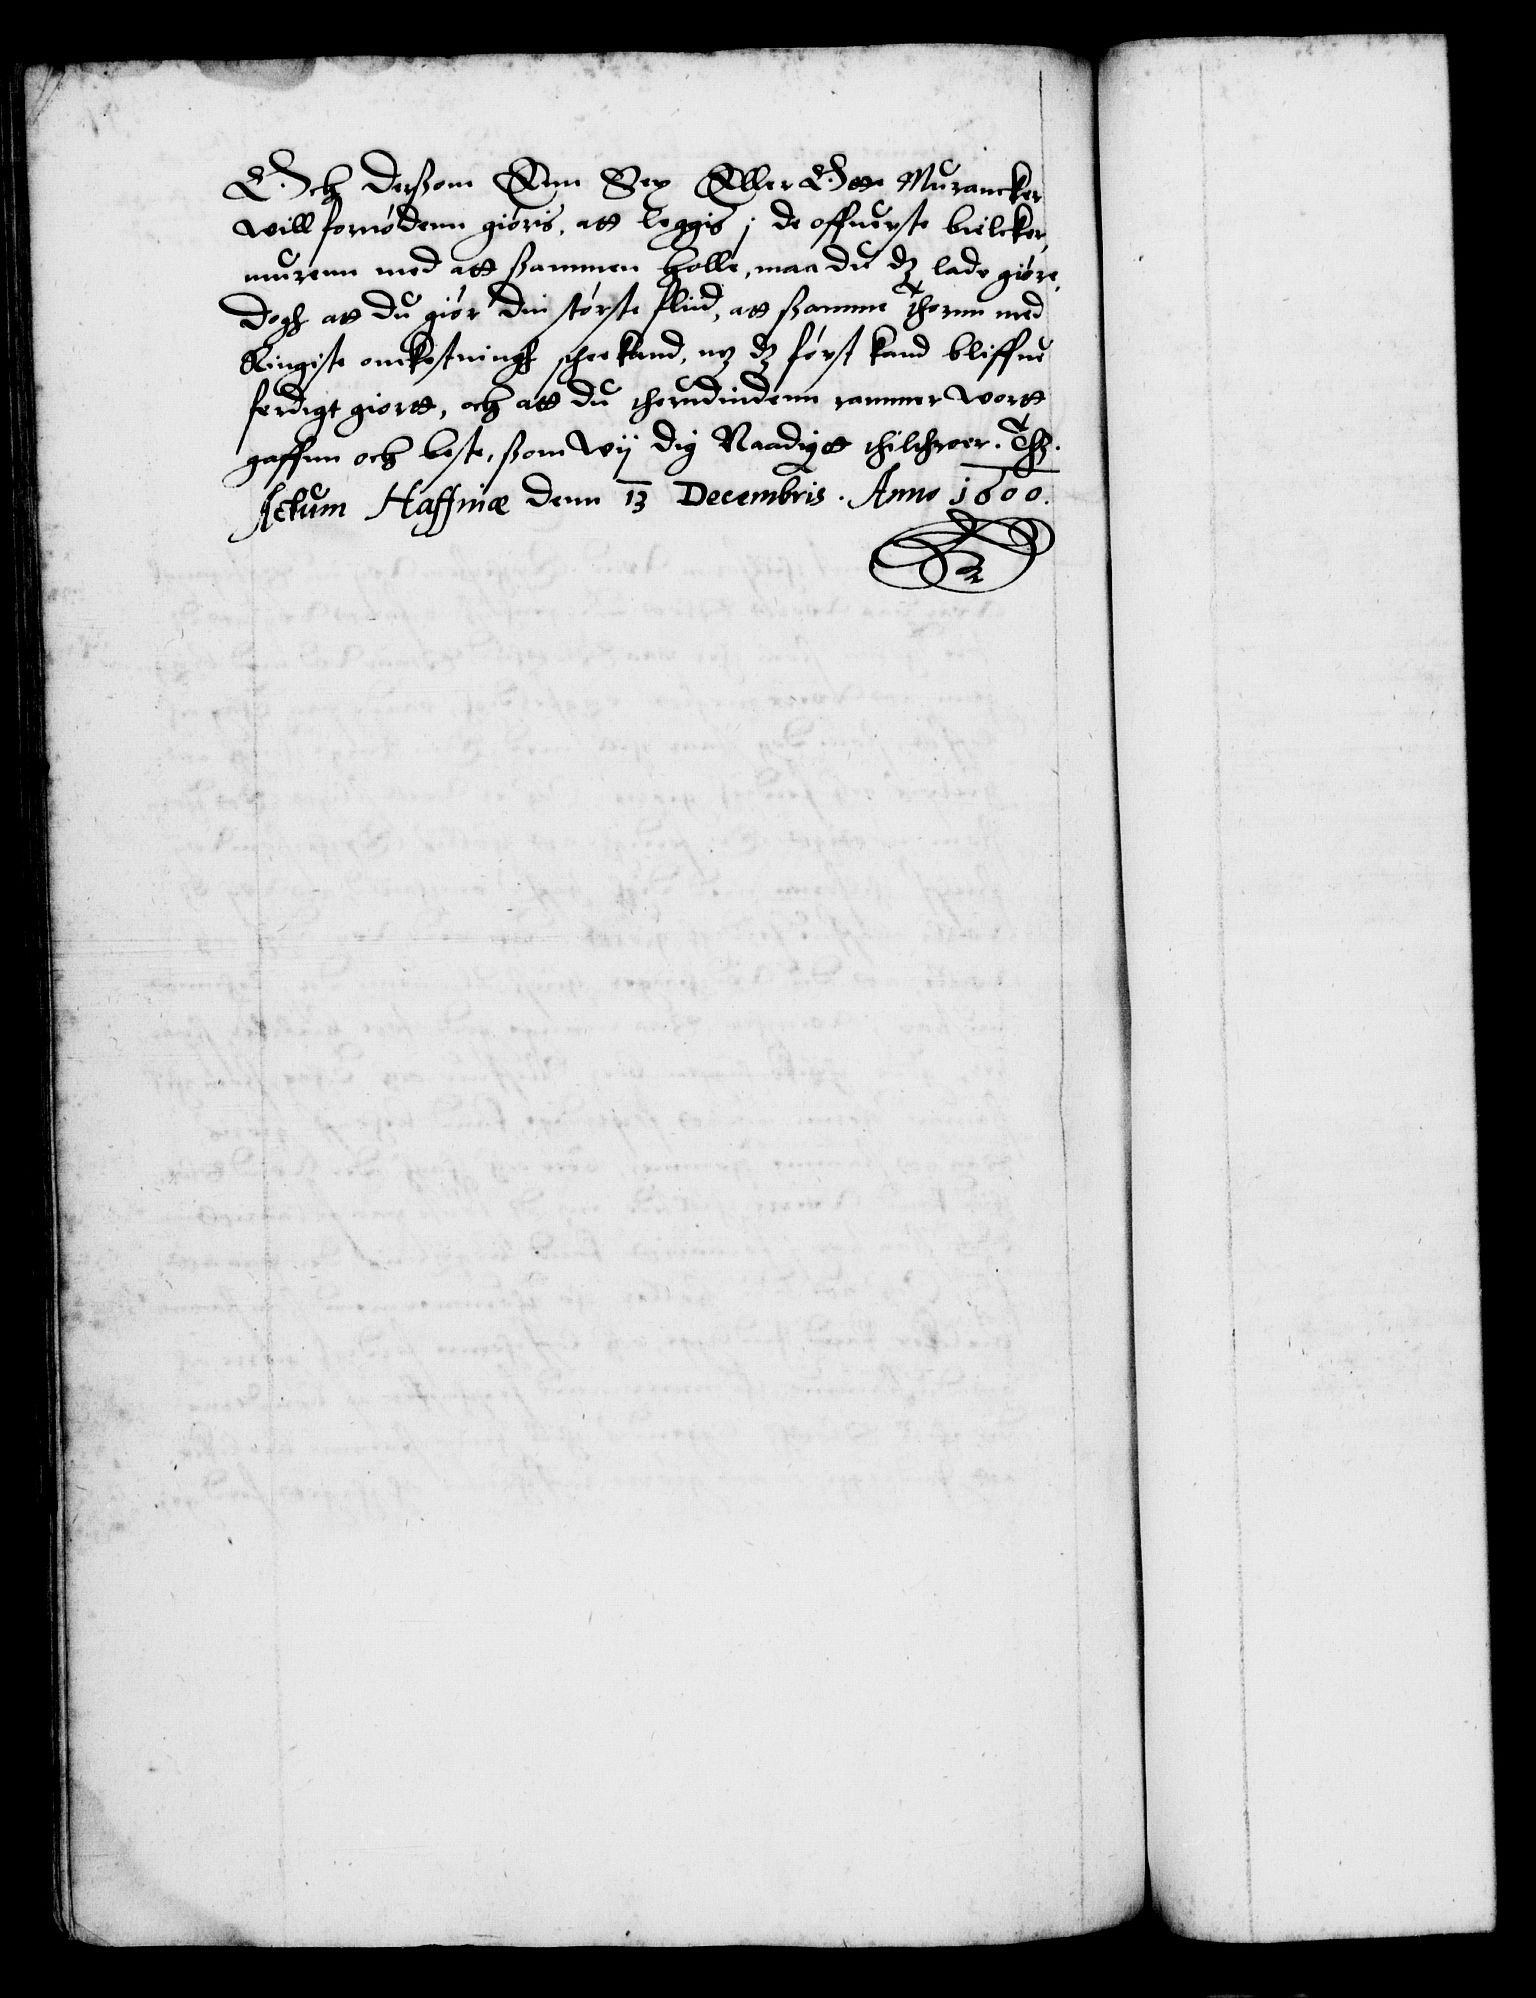 Och dersom Enn Sex Eller Otte Murancker
will fornødenn giøris, att leggis j de offuerste bielcker,
murenn med att sammen holle, maa du dz lade giøre,
Dogh att du giør din største flid, att samme thornn med
Ringiste omkostningh schee kand, nz dz først kand bliffue
ferdigt giortt, och att du therudindenn rammer wortt
gaffun och beste, som wij dig Naadigtt thilthroer. Thz.
Actum Haffniæ denn 13 Decembris. Anno 1600.